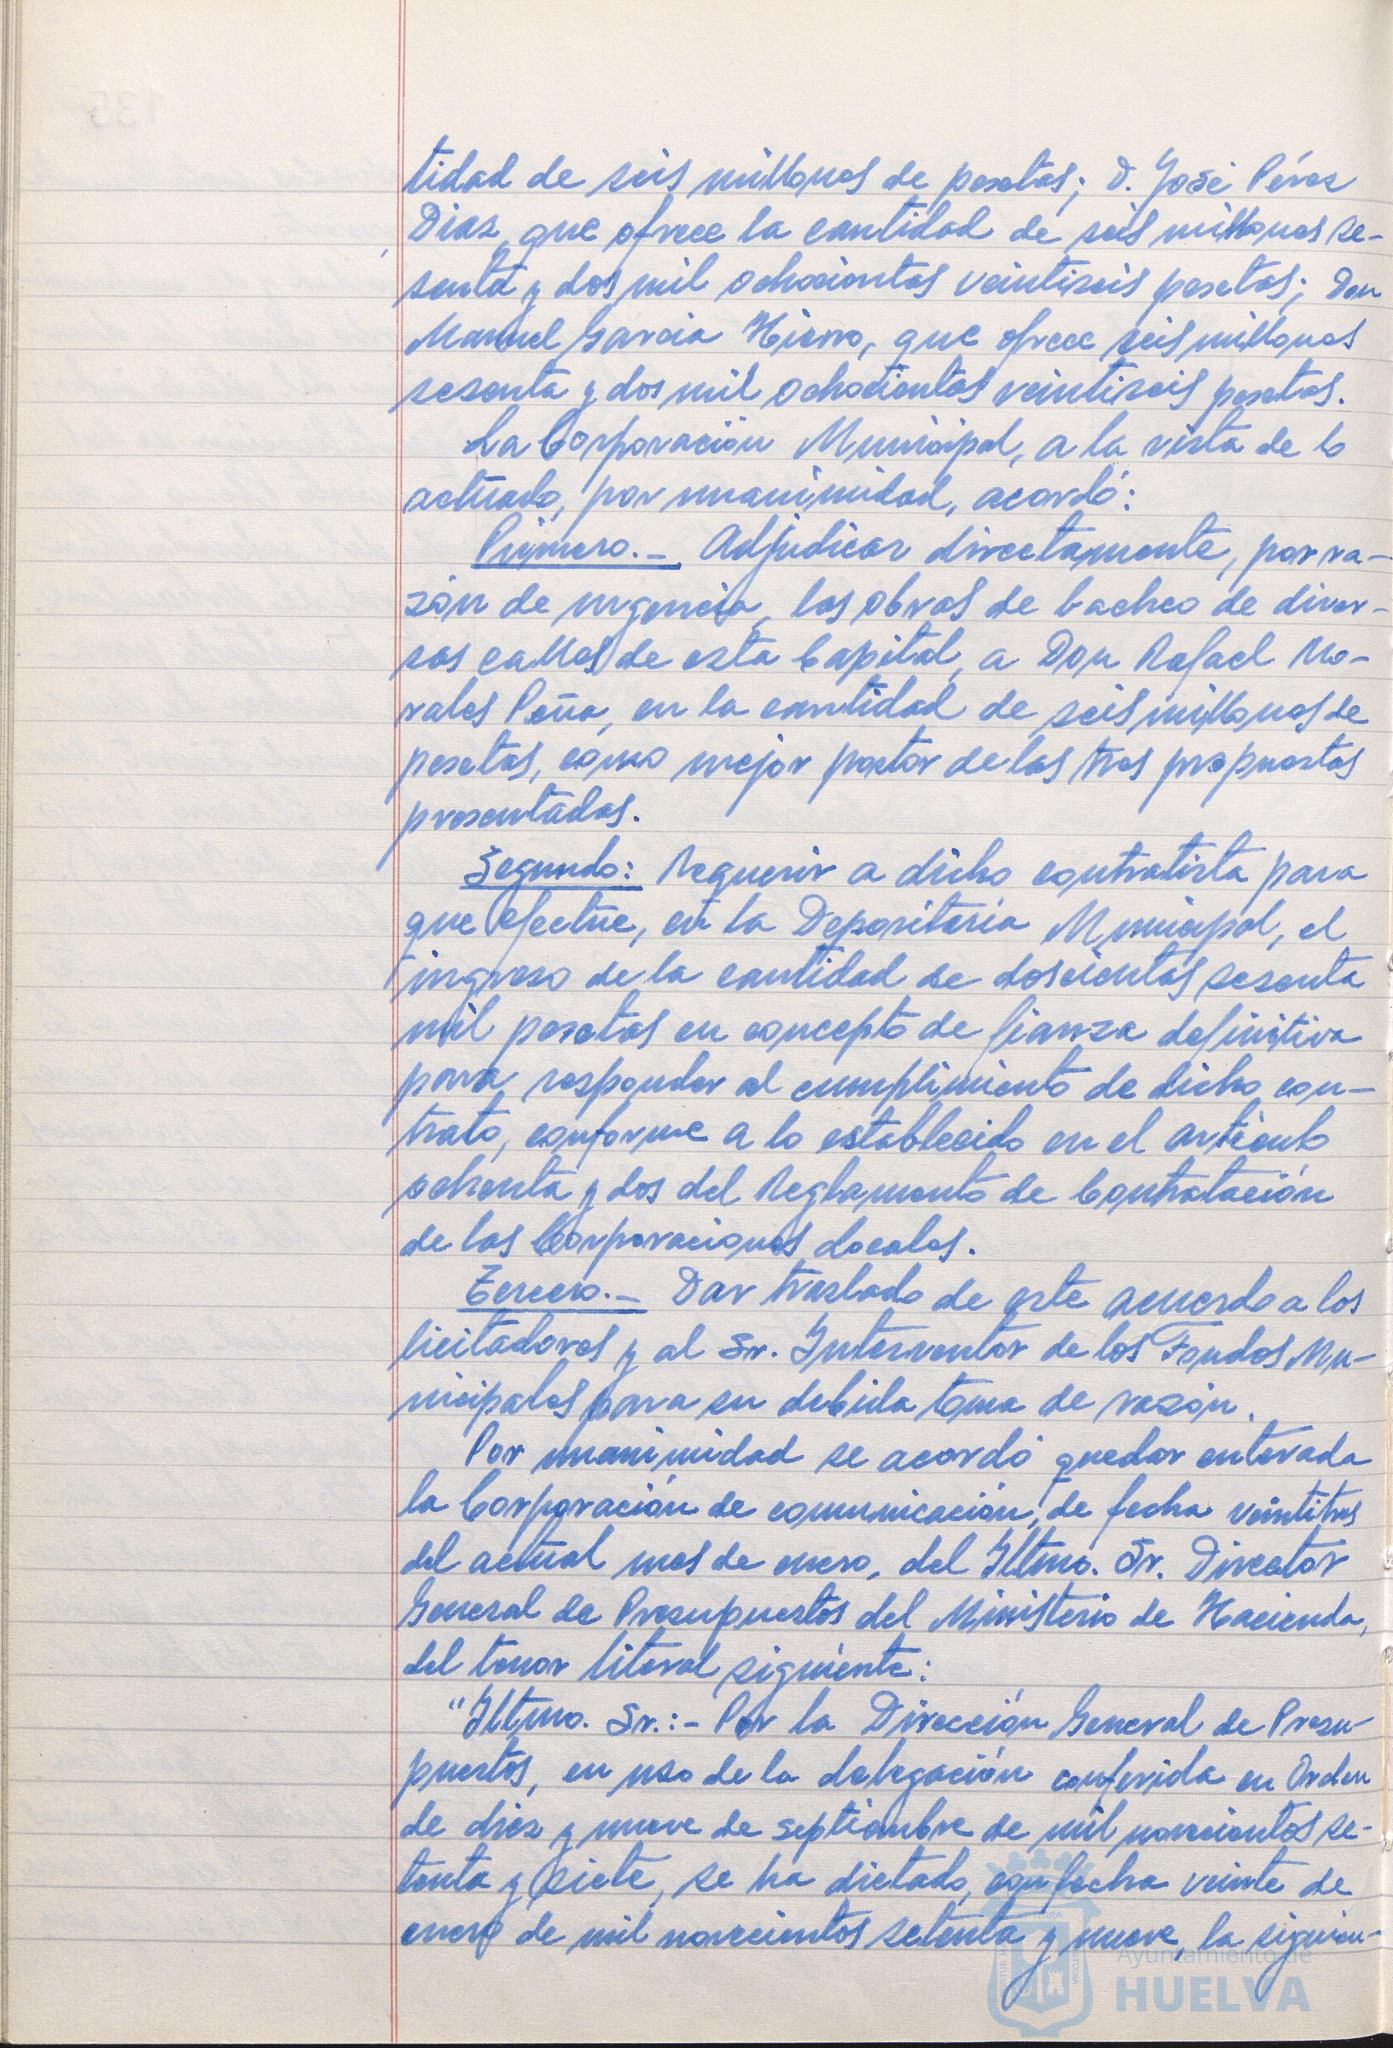 135
tidad de seis millones de pesetas; D. José Pérez
Diaz, que ofrece la cantidad de seis millones se-
senta y dos mil ochocientas veintiseis pesetas; Don
Manuel Garcia Hierro, que ofrece seis millones
sesenta y dos mil ochocientas veintiseis pesetas.
La Corporación Municipal, a la vista de lo
actuado, por unanimidad, acordó:
Primero.- Adjudicar directamente, por ra-
zón de urgencia, las obras de bacheo de diver-
sas calles de esta Capital, a Don Rafael Mo-
rales Peña, en la cantidad de seis millones de
pesetas, como mejor postor de las tres propuestas
presentadas.
Segundo: Requerir a dicho contratista para
que efectúe, en la Depositaria Municipal, el
ingreso de la cantidad de doscientas sesenta
mil pesetas en concepto de fianza definitiva
para responder al cumplimiento de dicho con-
trato, conforme a lo establecido en el artículo
ochenta y dos del Reglamento de Contratación
de las Corporaciones Locales.
Tercero.- Dar traslado de este acuerdo a los
licitadores y al Sr. Interventor de los Fondos Mu-
nicipales para su debida toma de razón.
Por unanimidad se acordó quedar enterada
la Corporación de comunicación, de fecha veintitres
del actual mes de enero, del Iltmo. Sr. Director
General de Presupuestos del Ministerio de Hacienda,
del tenor literal siguiente:
"Iltmo. Sr.:- Por la Dirección General de Presu-
puestos, en uso de la delegación conferida en Orden
de diez y nueve de septiembre de mil novecientos se-
tenta y siete, se ha dictado, con fecha veinte de
enero de mil novecientos setenta y nueve, la siguien-
Ayuntamiento de
HUELVA